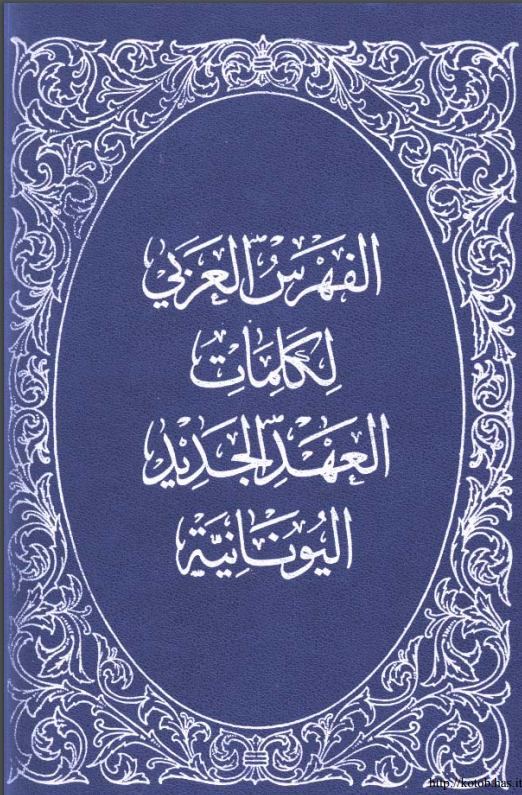 الفهرس العربي
لكلمات
العهد الجديد
اليونانية
http://kotob.has.it